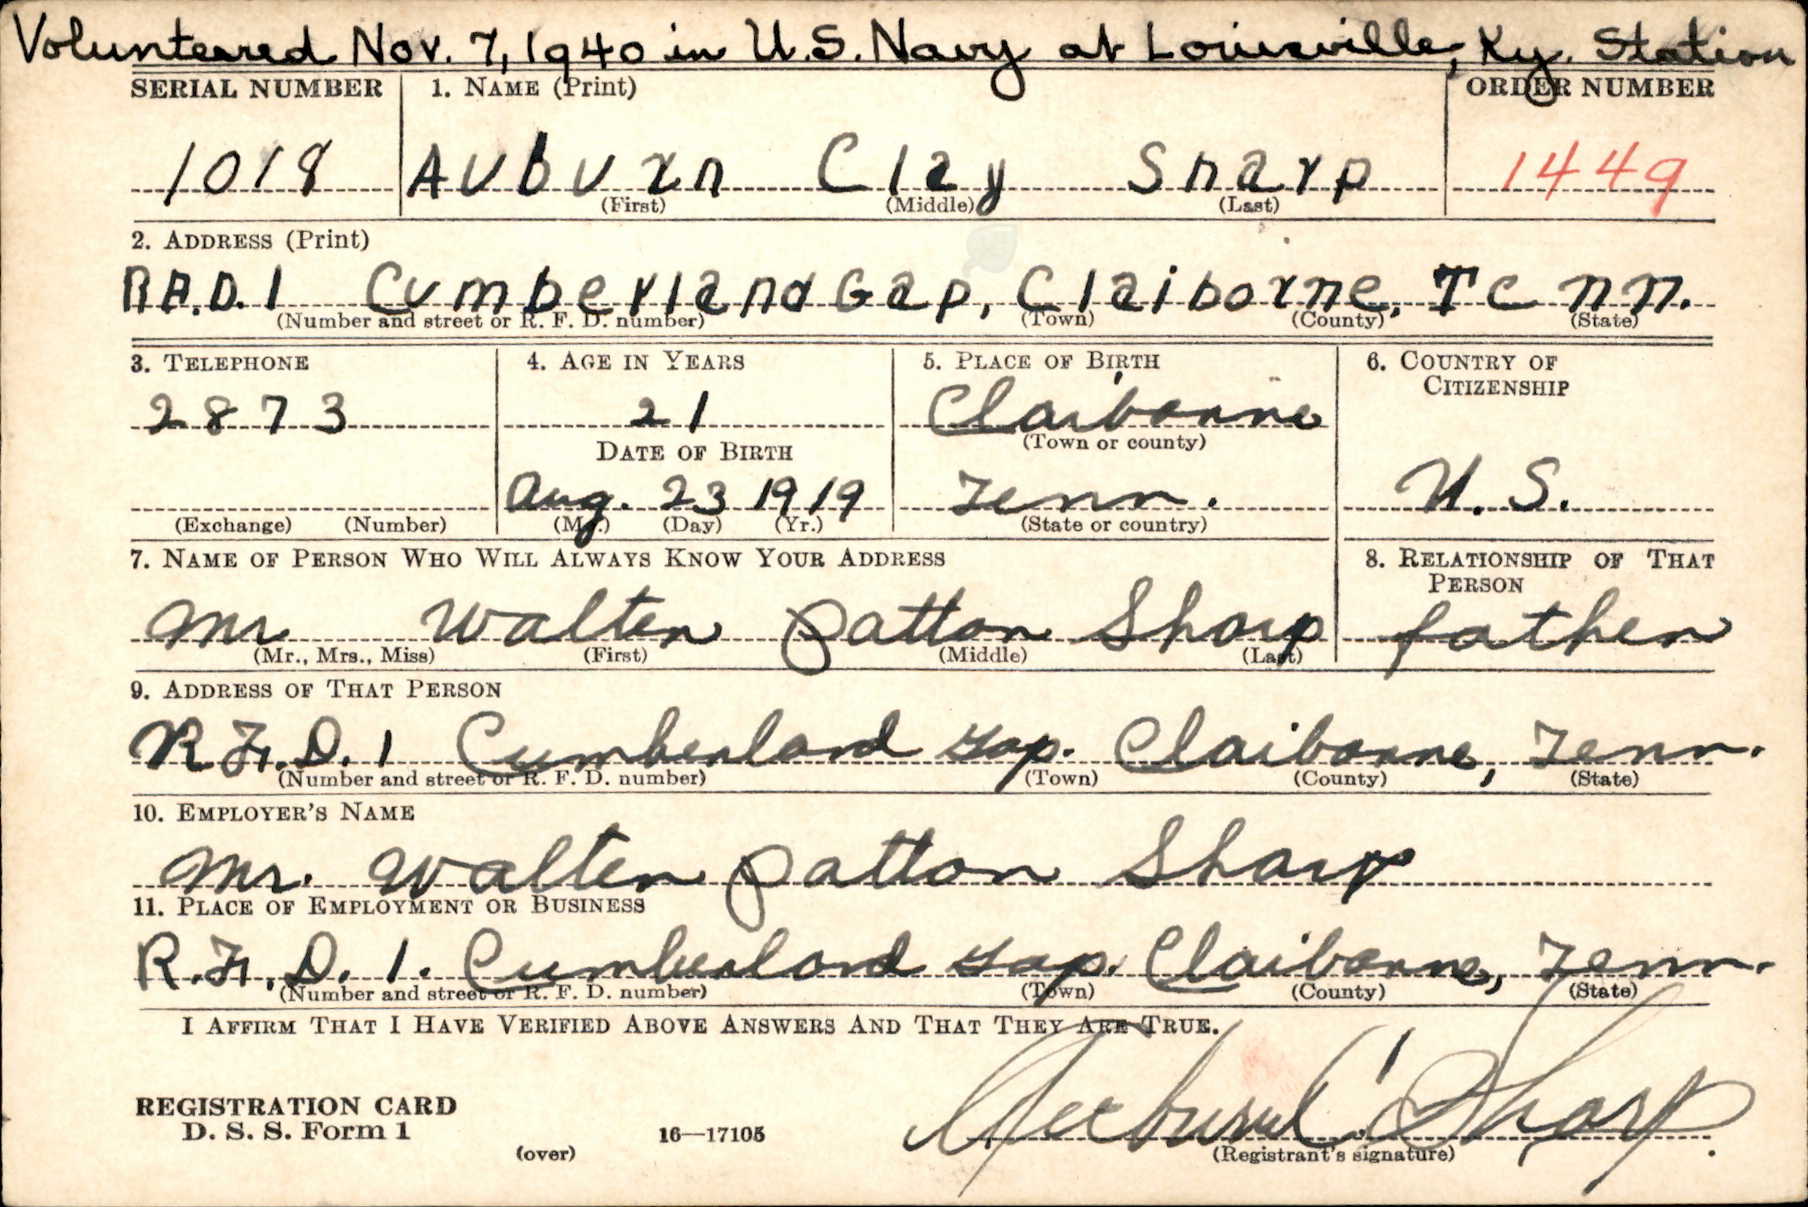 Volunteered Nov. 7, 1940 in U.S. Navy at Louisville, Ky. Station
SERIAL NUMBER 1. NAME (Print) ORDER NUMBER
1018 Auburn Clay Sharp 1449
(First) (Middle) (Last)
2. ADDRESS (Print)
R.F.D. 1 Cumberland Gap, Claiborne, Tenn.
(Number and street or R. F. D. number) (Town) (County) (State)
3. TELEPHONE 4. AGE IN YEARS 5. PLACE OF BIRTH 6. COUNTRY OF
CITIZENSHIP
2873 21 Claiborne
DATE OF BIRTH (Town or county)
Aug. 23 1919 Tenn. U. S.
(Exchange) (Number) (Mo.) (Day) (Yr.) (State or country)
7. NAME OF PERSON WHO WILL ALWAYS KNOW YOUR ADDRESS 8. RELATIONSHIP OF THAT
PERSON
Mr Walter Patton Sharp father
(Mr., Mrs., Miss) (First) (Middle) (Last)
9. ADDRESS OF THAT PERSON
R.F.D. 1 Cumberland Gap. Claiborne, Tenn.
(Number and street or R. F. D. number) (Town) (County) (State)
10. EMPLOYER'S NAME
Mr. Walter Patton Sharp
11. PLACE OF EMPLOYMENT OR BUSINESS
R.F.D. 1. Cumberland Gap. Claiborne, Tenn.
(Number and street or R. F. D. number) (Town) (County) (State)
I AFFIRM THAT I HAVE VERIFIED ABOVE ANSWERS AND THAT THEY ARE TRUE.
REGISTRATION CARD
D. S. S. Form 1 16—17105 Auburn C Sharp.
(over) (Registrant's signature)